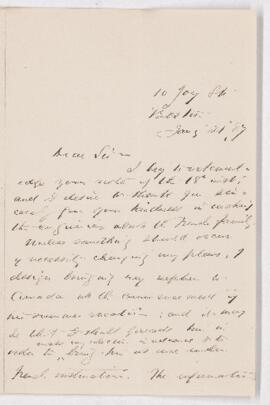 10 Joy St.
Boston
Jany 21 '87
Dear Sir
I beg to acknowl-
edge your note of the 18th inst.
and I desire to thank you sin-
cerely for your kindness in making
the enquiries about the French family
Unless something should occur
necessarily changing my plans, I
design bringing my nephew to
Canada at the commencement of
his summer vacation; and it may
be that I shall precede him in
order to
bring him at once under
French instruction. The information